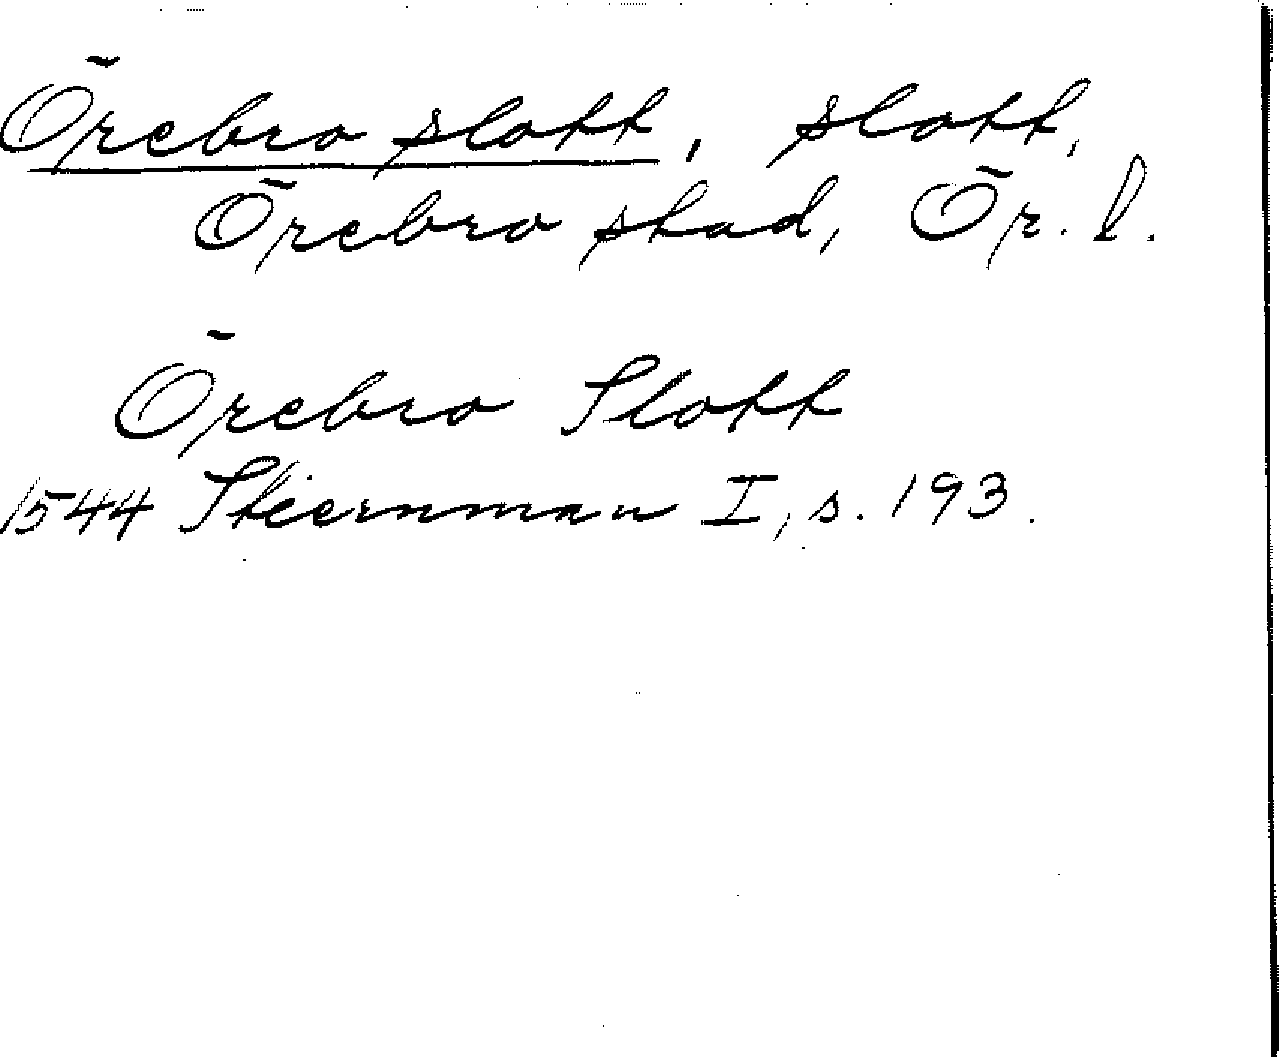 Örebro slott, slott,
Örebro stad, Ör. l.
Örebro Slott
1544 Stiernman I, s. 193.